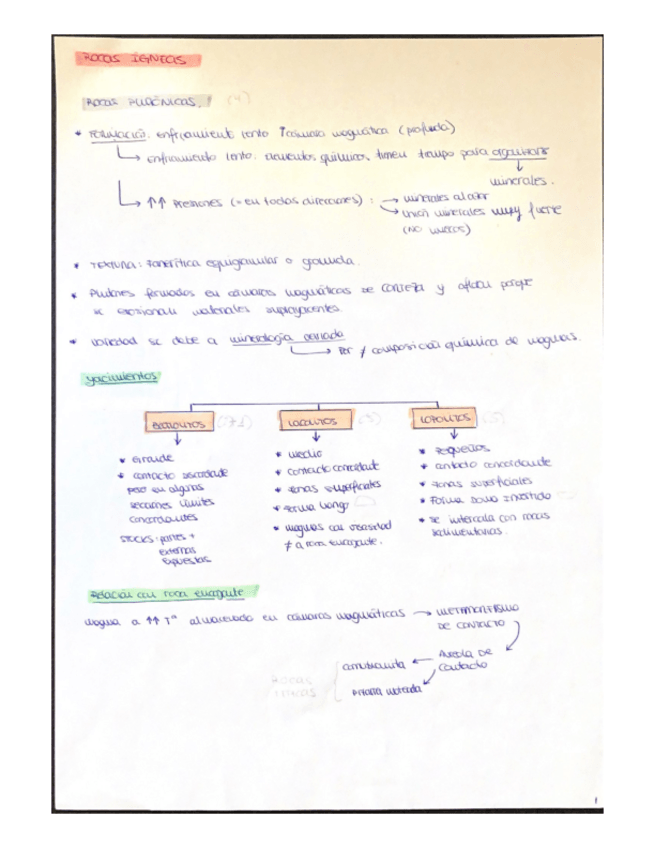 ROCAS ÍGNEAS
ROCAS PLUTÓNICAS. (4)
* FORMACIÓN: enfriamiento lento cámara magmática (profunda)
enfriamiento lento: elementos químicos tienen tiempo para organizarse
minerales.
↑↑ Presiones (= en todas direcciones): → minerales al azar
→ unión minerales muy fuerte
(NO huecos)
* TEXTURA: Fanerítica equigranular o granuda.
* Plutones formados en cámaras magmáticas se corteza y afloran porque
se erosionan materiales suprayacentes.
* variedad se debe a mineralogía variada
→ Por ≠ composición química de magmas.
yacimientos
BATOLITOS LACOLITOS LOPOLITOS
* Grande
* contacto discordante
pero en algunas
secciones límites
concordantes
STOCKS: partes +
externas
expuestas
* medio
* contacto concordante
* zonas superficiales
* forma hongo
* magmas con viscosidad
≠ a roca encajante.
* Pequeños
* contacto concordante
* zonas superficiales
* Forma domo invertido
* se intercala con rocas
sedimentarias.
Relación con roca encajante
Magma a ↑↑ Tª almacenado en cámaras magmáticas → METAMORFISMO
DE CONTACTO
AUREOLA DE
contacto
corneanita
Pizarra moteada
ROCAS